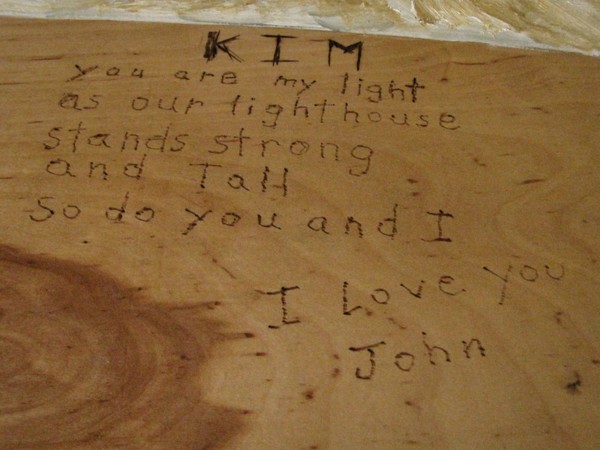 KIM
you are my light
as our lighthouse
stands strong
and Tall
So do you and I
I Love you
John